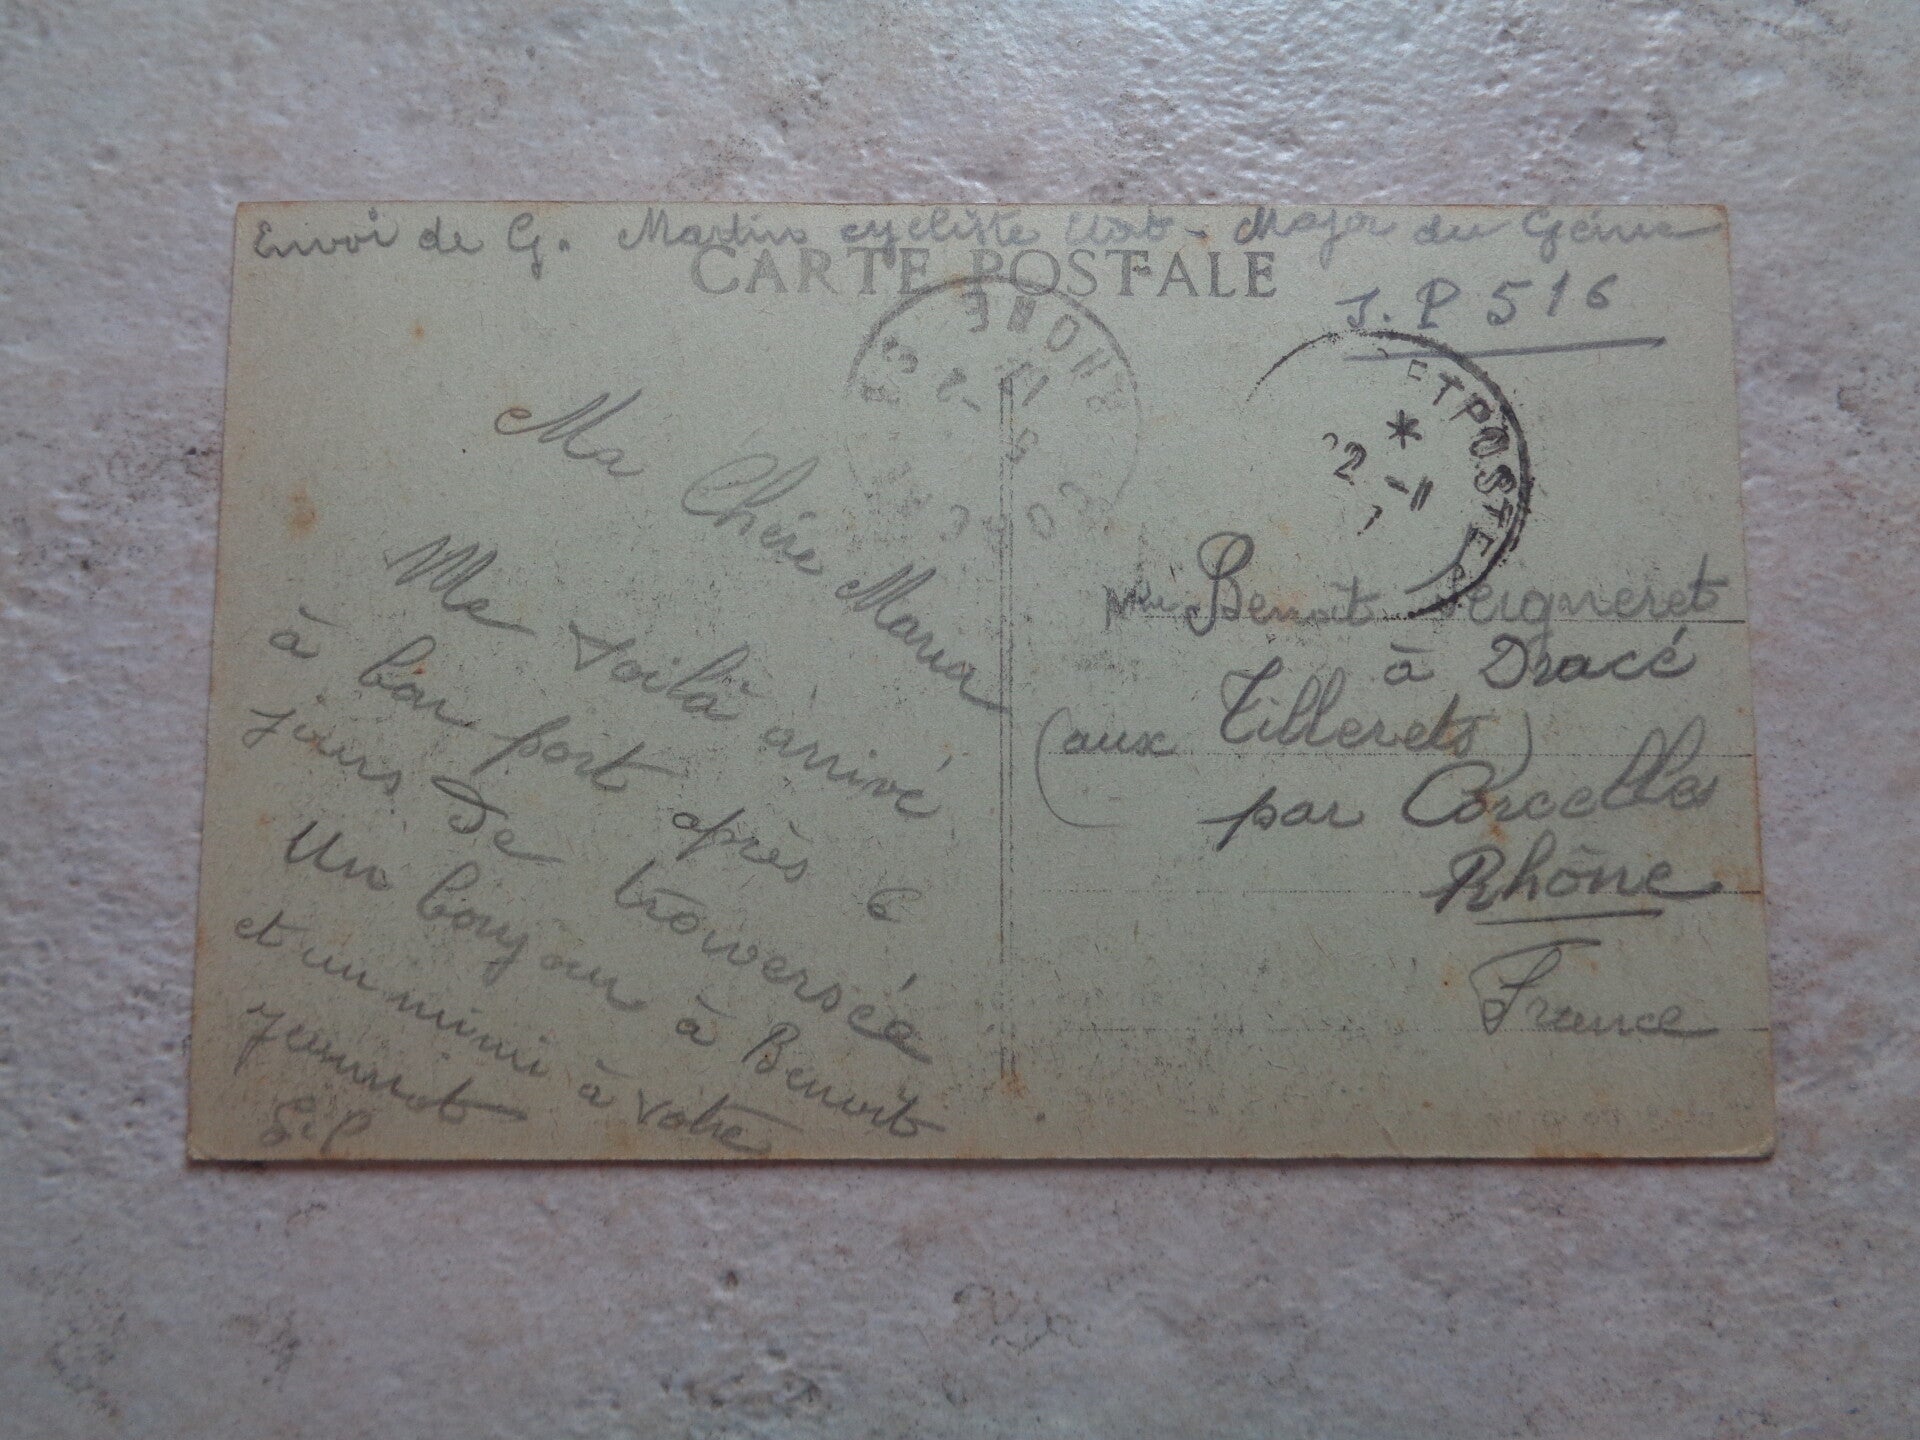 Envoi de G. Martin cycliste Etat-Major du Génie
CARTE POSTALE
S. P 516
RHONE
ET POSTES
*
2 -11
Ma Chère Maria
Me voilà arrivé
à bon port après 6
jours de traversée
Un bonjour à Benoit
et un mimi à votre
Jeannot
Gil
Mme Benoit Seigneret
à Dracé
(aux Tillerets)
par Corcelles
Rhône
France